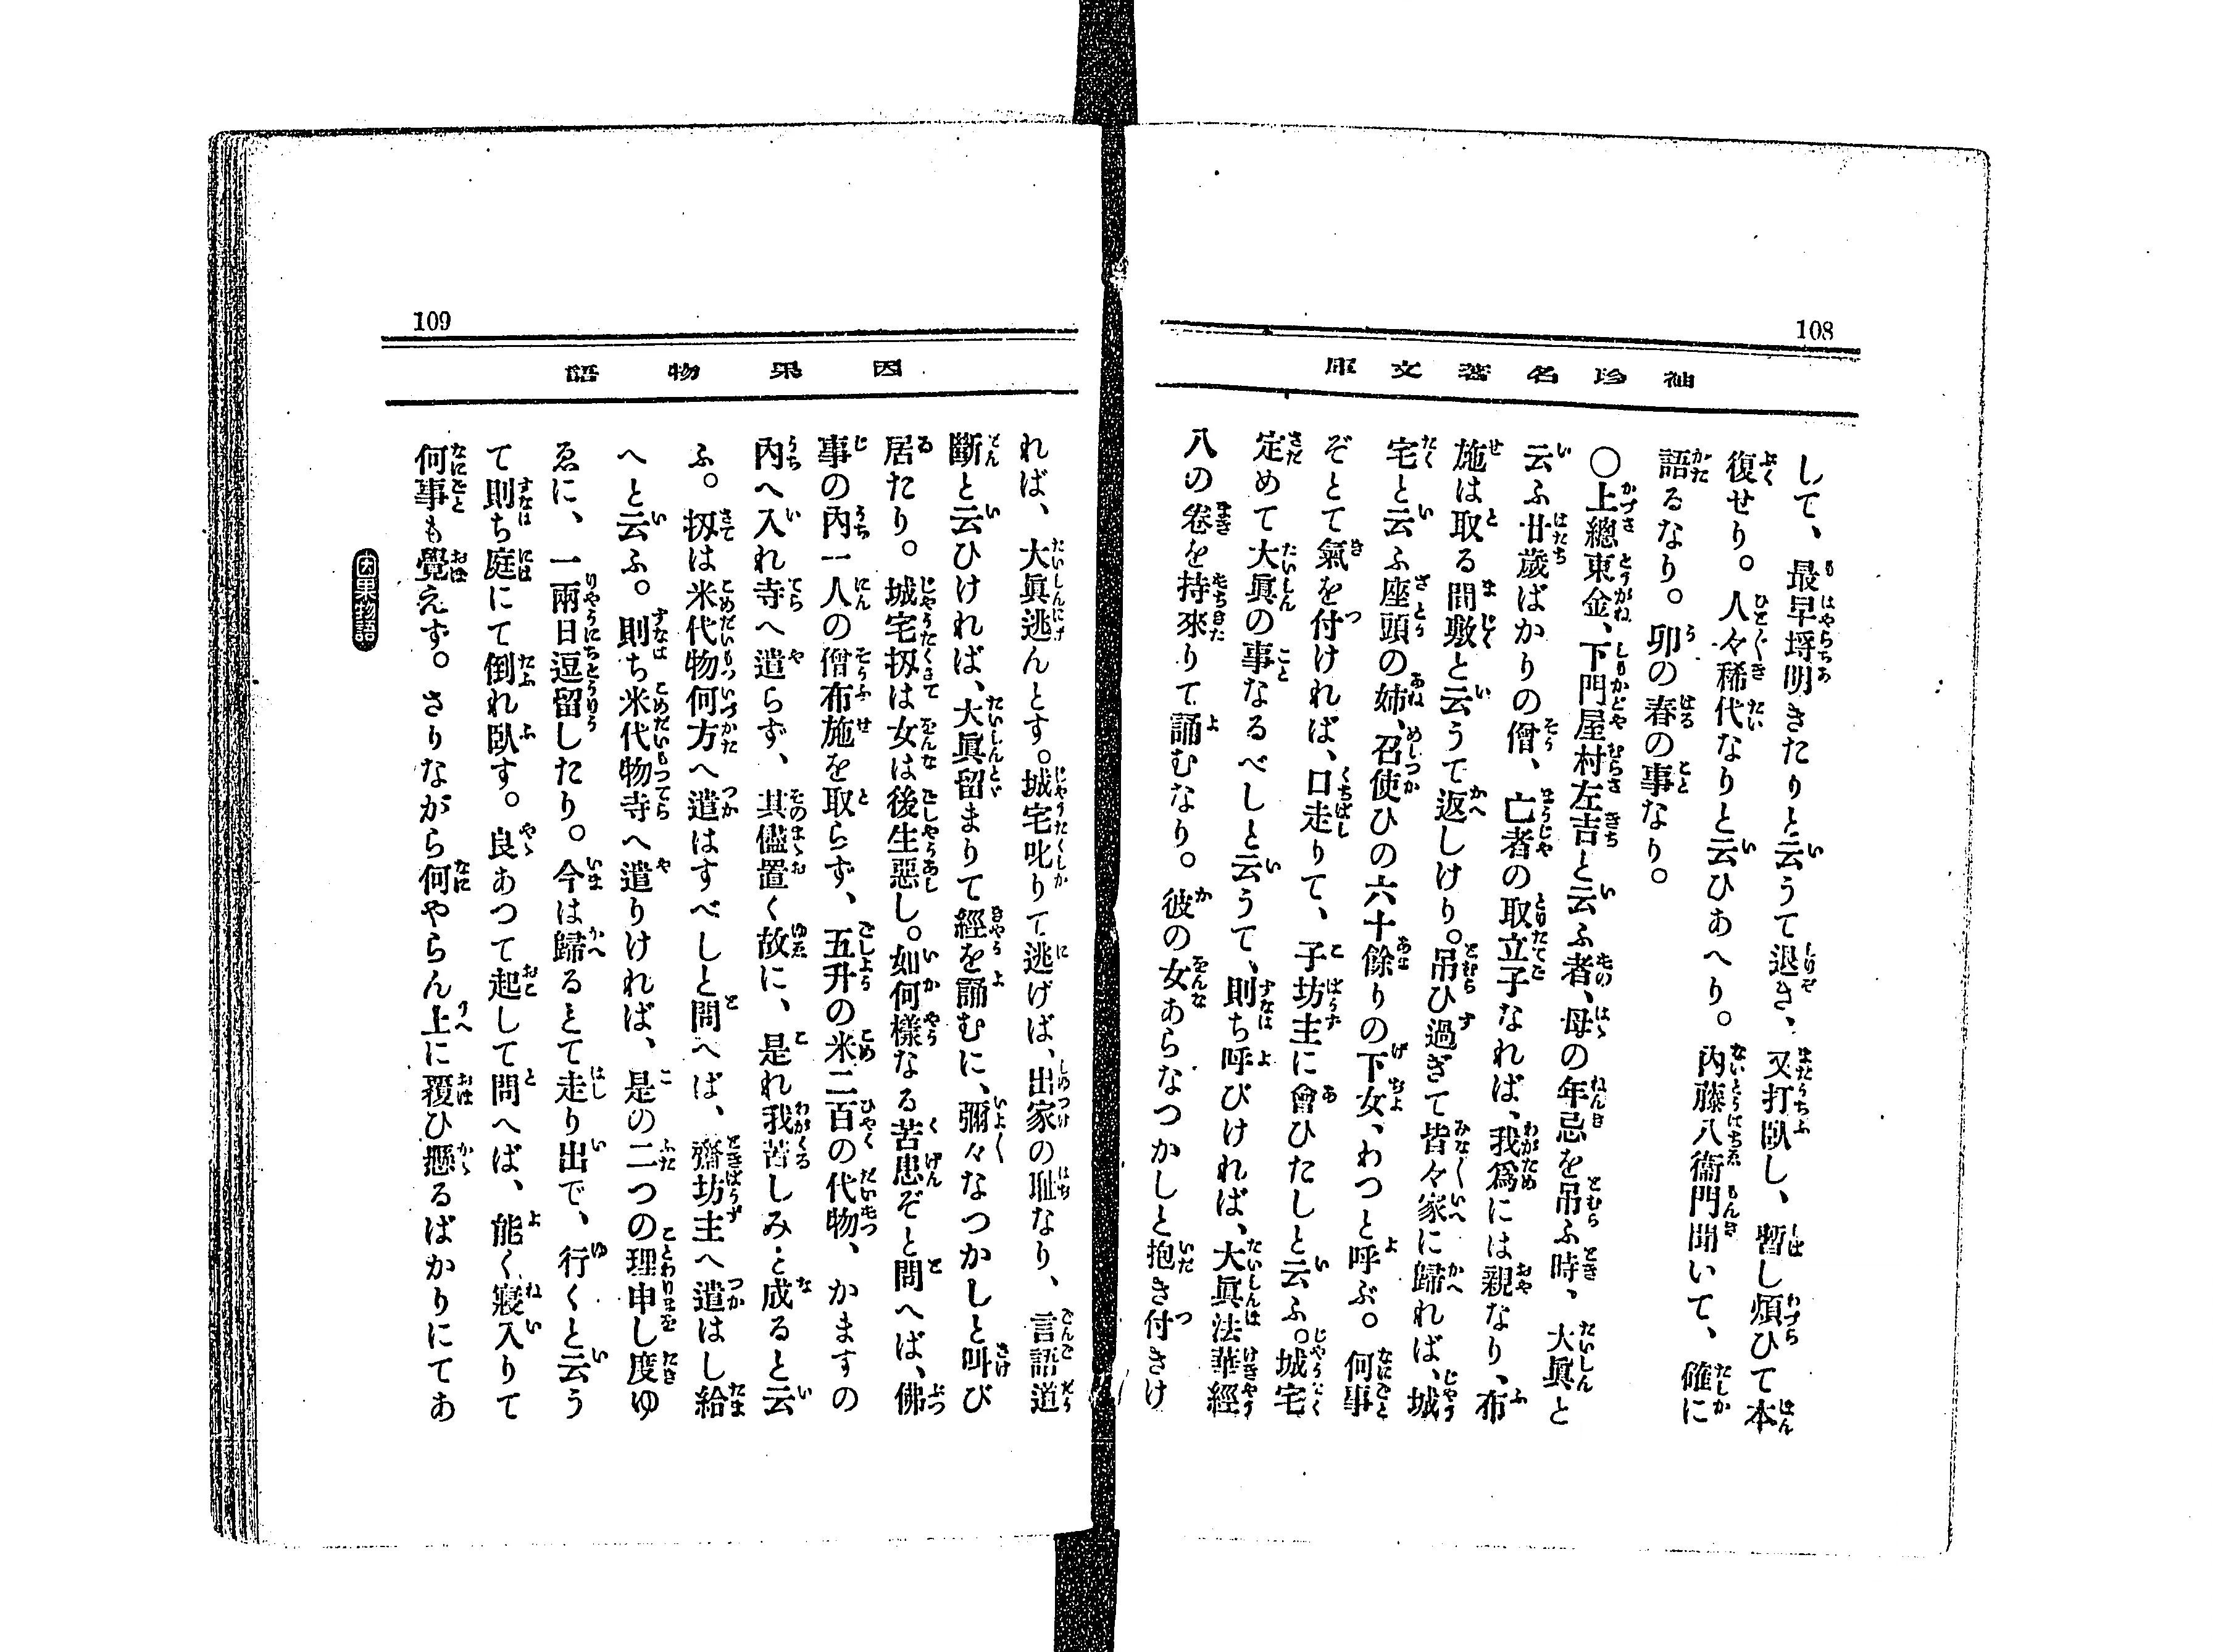 108
袖珍名著文庫
して、最早埒明きたりと云うて退き、又打臥し、暫し煩ひて本
復せり。人々稀代なりと云ひあへり。内藤八衞門聞いて、確に
語るなり。卯の春の事なり。
〇上總東金、下門屋村左吉と云ふ者、母の年忌を吊ふ時、大眞と
云ふ廿歲ばかりの僧、亡者の取立子なれば、我爲には親なり、布
施は取る間敷と云うて返しけり。吊ひ過ぎて皆々家に歸れば、城
宅と云ふ座頭の姉、召使ひの六十餘りの下女、わつと呼ぶ。何事
ぞとて氣を付ければ、口走りて、子坊主に會ひたしと云ふ。城宅
定めて大眞の事なるべしと云うて、則ち呼びければ、大眞法華經
八の卷を持來りて誦むなり。彼の女あらなつかしと抱き付きけ
109
因果物語
れば、大眞逃んとす。城宅叱りて逃げば、出家の耻なり、言語道
斷と云ひければ、大眞留まりて經を誦むに、彌々なつかしと叫び
居たり。城宅扨は女は後生惡し。如何樣なる苦患ぞと問へば、佛
事の內一人の僧布施を取らず、五升の米二百の代物、かますの
內へ入れ寺へ遣らず、其儘置く故に、是れ我苦しみと成ると云
ふ。扨は米代物何方へ遣はすべしと問へば、齋坊主へ遣はし給
へと云ふ。則ち米代物寺へ遣りければ、是の二つの理申し度ゆ
ゑに、一兩日逗留したり。今は歸るとて走り出で、行くと云う
て則ち庭にて倒れ臥す。良あつて起して問へば、能く寢入りて
何事も覺えず。さりながら何やらん上に覆ひ懸るばかりにてあ
因果物語